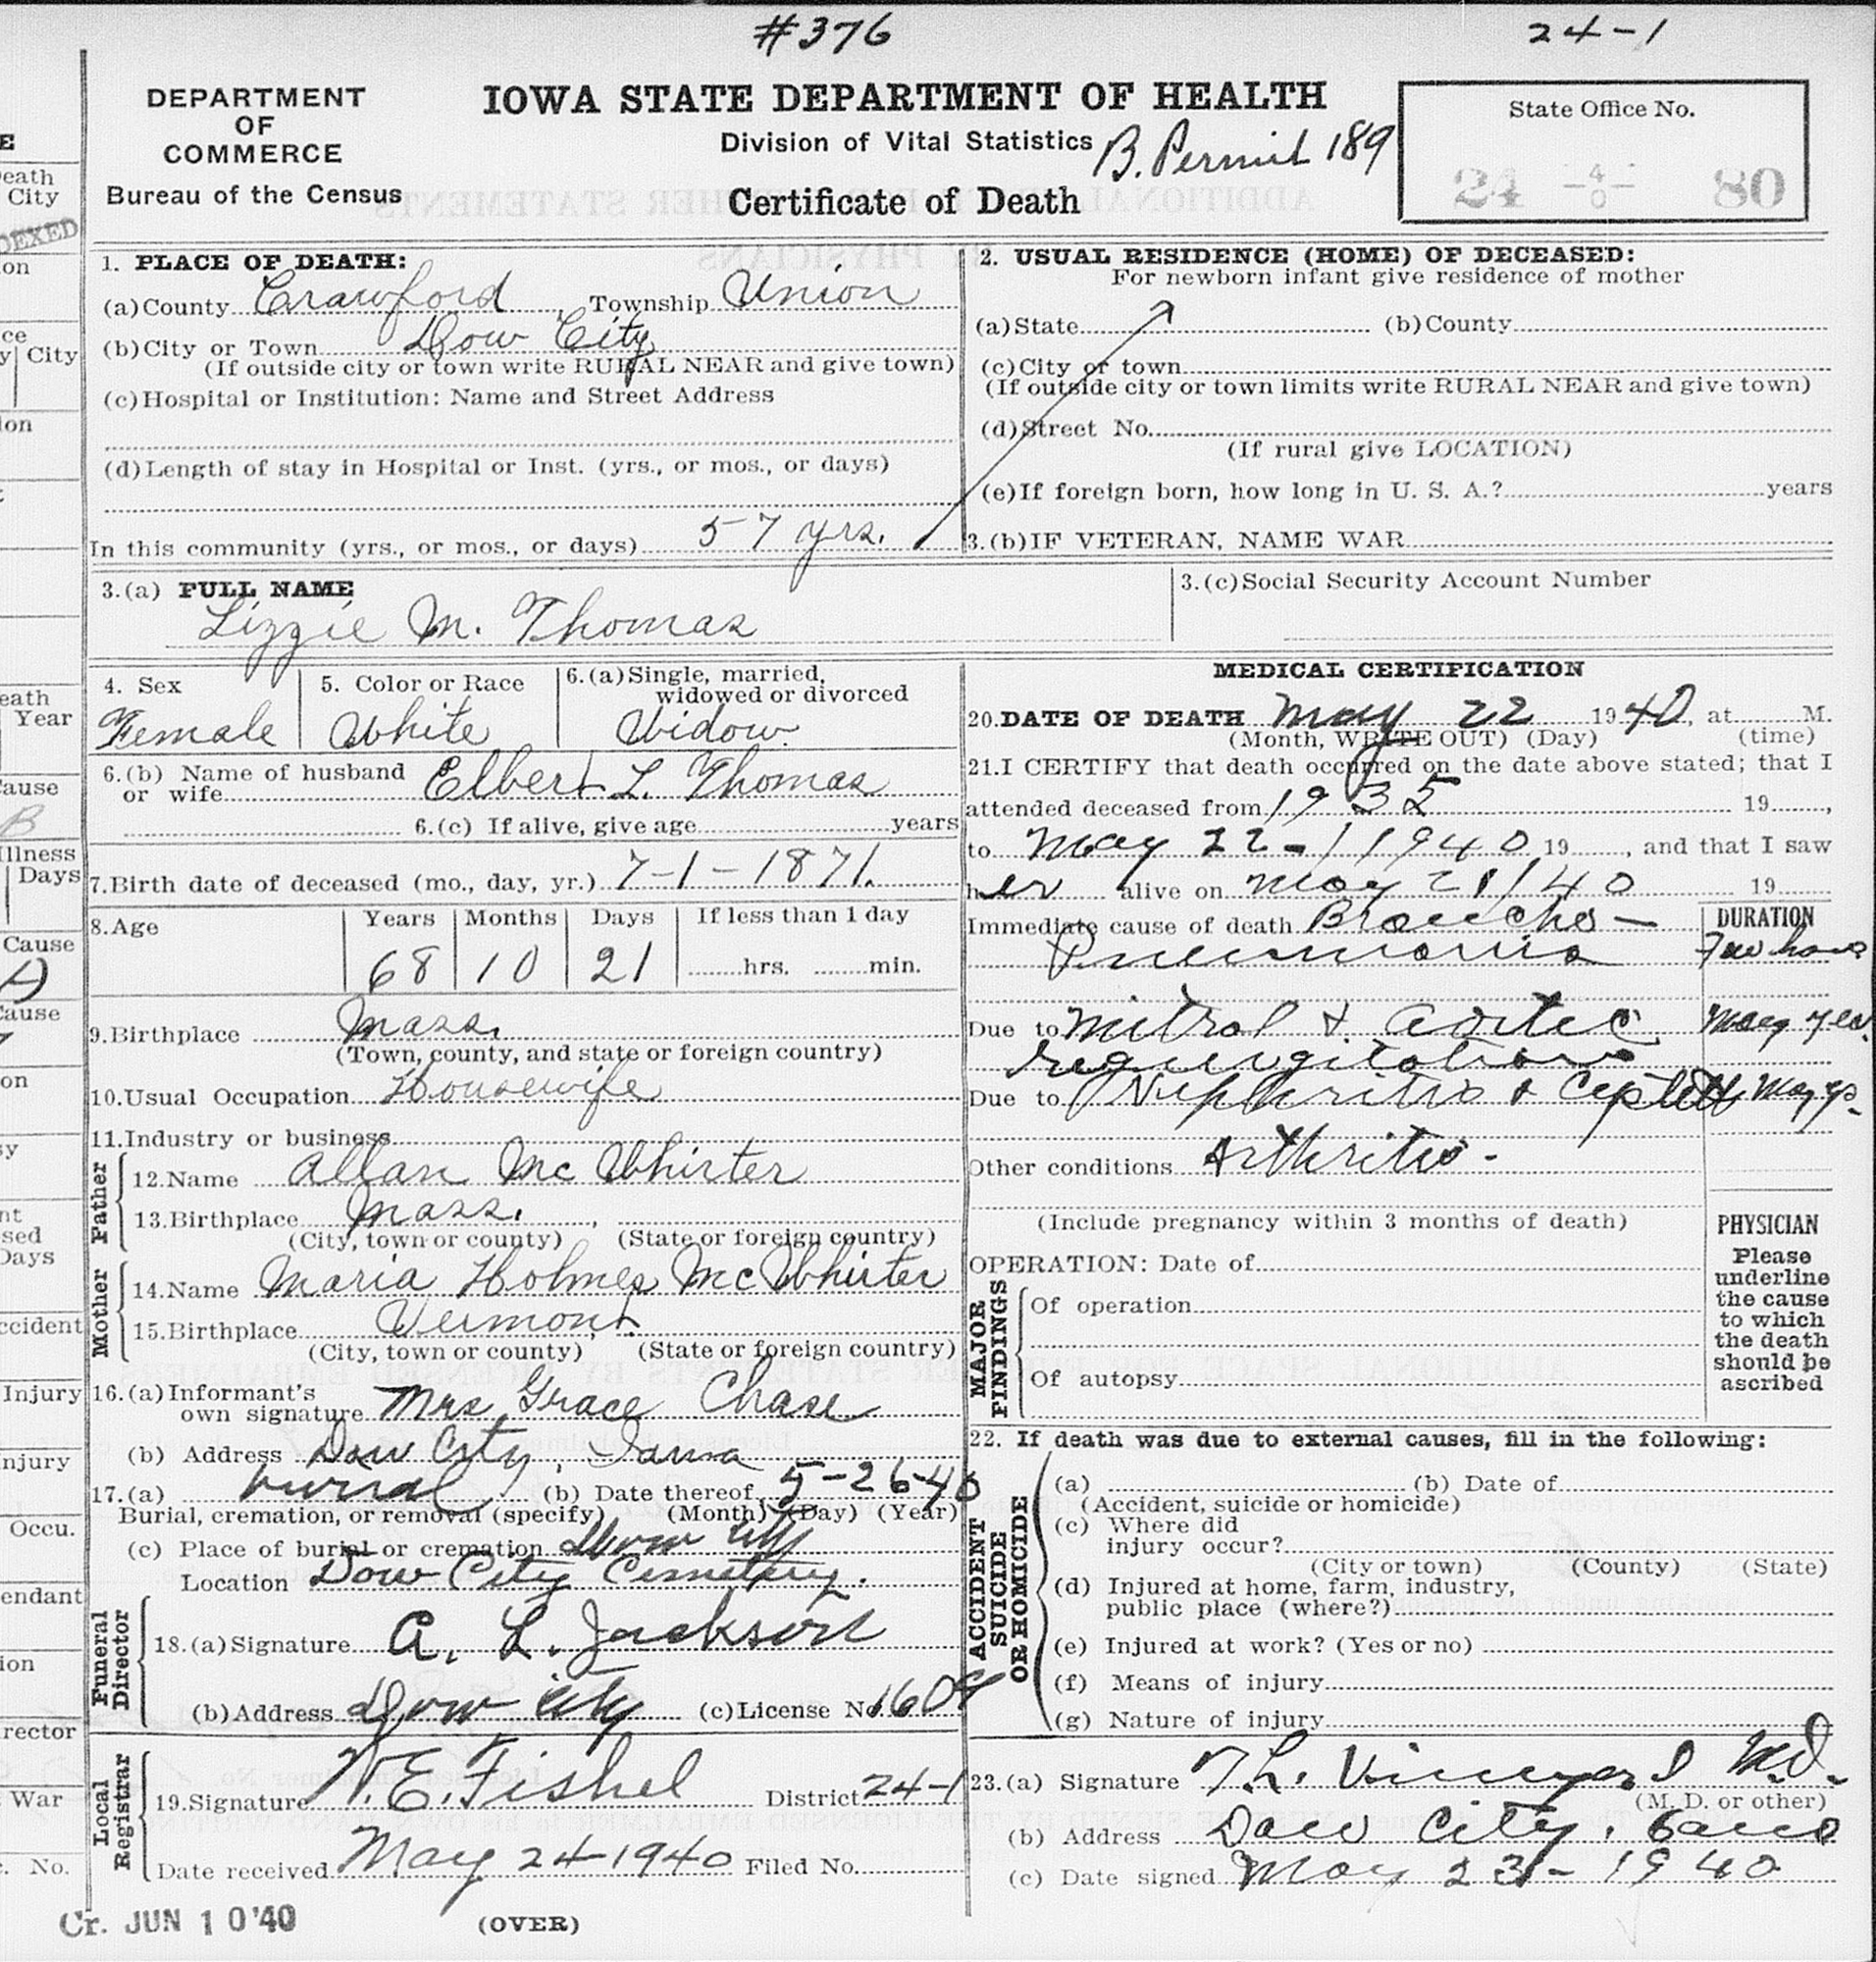 #376
24-1
DEPARTMENT
OF
COMMERCE
Bureau of the Census
IOWA STATE DEPARTMENT OF HEALTH
Division of Vital Statistics
B. Permit 189
Certificate of Death
State Office No.
24 -40- 80
1. PLACE OF DEATH:
(a) County Crawford, Township Union
(b) City or Town Dow City
(If outside city or town write RURAL NEAR and give town)
(c) Hospital or Institution: Name and Street Address
(d) Length of stay in Hospital or Inst. (yrs., or mos., or days)
In this community (yrs., or mos., or days) 57 yrs.
2. USUAL RESIDENCE (HOME) OF DECEASED:
For newborn infant give residence of mother
(a) State (b) County
(c) City or town
(If outside city or town limits write RURAL NEAR and give town)
(d) Street No.
(If rural give LOCATION)
(e) If foreign born, how long in U. S. A.? years
3.(b) IF VETERAN, NAME WAR
3.(a) FULL NAME
Lizzie M. Thomas
3.(c) Social Security Account Number
4. Sex
Female
5. Color or Race
White
6.(a) Single, married,
widowed or divorced
Widow.
6.(b) Name of husband
or wife Elbert L. Thomas
6.(c) If alive, give age years
7. Birth date of deceased (mo., day, yr.) 7-1-1871.
8. Age Years Months Days If less than 1 day
68 10 21 hrs. min.
9. Birthplace Mass.
(Town, county, and state or foreign country)
10. Usual Occupation Housewife
11. Industry or business
Father
12. Name Allan Mc Whirter
13. Birthplace Mass.,
(City, town or county) (State or foreign country)
Mother
14. Name Maria Holmes McWhirter
15. Birthplace Vermont
(City, town or county) (State or foreign country)
16.(a) Informant's
own signature Mrs Grace Chase
(b) Address Dow City, Iowa
17.(a) burial (b) Date thereof 5-26-40
Burial, cremation, or removal (specify) (Month) (Day) (Year)
(c) Place of burial or cremation Dow City
Location Dow City Cemetery.
Funeral Director
18.(a) Signature A. L. Jackson
(b) Address Dow City (c) License No. 1609
Local Registrar
19. Signature W.E. Fishel District 24-1
Date received May 24 1940 Filed No.
Cr. JUN 10 '40
(OVER)
MEDICAL CERTIFICATION
20. DATE OF DEATH May 22 1940, at M.
(Month, WRITE OUT) (Day) (time)
21. I CERTIFY that death occurred on the date above stated; that I
attended deceased from 1935 19,
to May 22-1940 19, and that I saw
her alive on May 21/40 19
Immediate cause of death Broncho-
Pneumonia
DURATION
Few hours
Due to Mitral & Aortic
regurgitation
Many yea.
Due to Nephritis &
Many ys.
Other conditions Arthritis.
(Include pregnancy within 3 months of death)
OPERATION: Date of
MAJOR FINDINGS
Of operation
Of autopsy
PHYSICIAN
Please
underline
the cause
to which
the death
should be
ascribed
22. If death was due to external causes, fill in the following:
ACCIDENT
SUICIDE
OR HOMICIDE
(a) (b) Date of
(Accident, suicide or homicide)
(c) Where did
injury occur?
(City or town) (County) (State)
(d) Injured at home, farm, industry,
public place (where?)
(e) Injured at work? (Yes or no)
(f) Means of injury
(g) Nature of injury
23.(a) Signature Vinyard M.D.
(M. D. or other)
(b) Address Dow City, Iowa
(c) Date signed May 23-1940